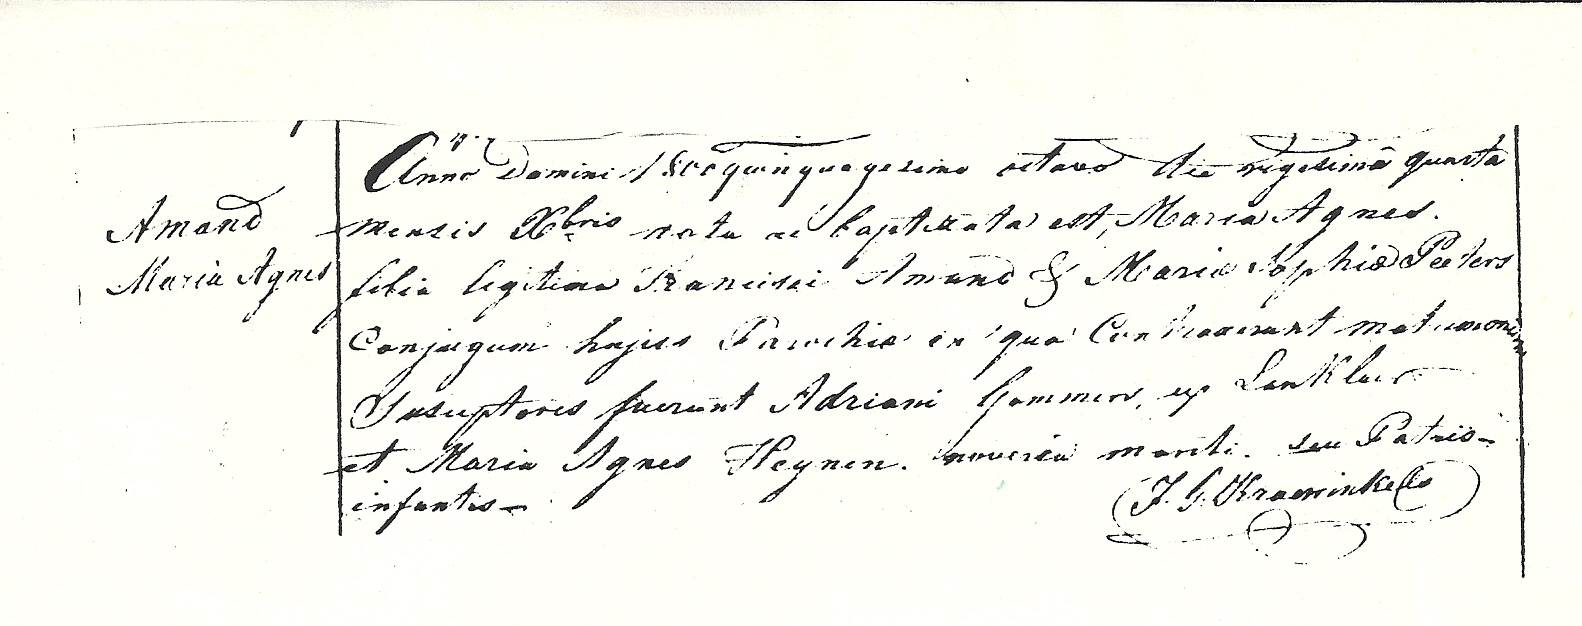 Amand
Maria Agnes
Anno Domini 18oc quinquagesimo octavo die vigesimâ quarta
mensis Xbris nata ac baptizata est, Maria Agnes.
filia legitima Francisci Amand & Mariæ Sophiæ Peeters
Conjugum hujus Parochiæ in qua Contraxerunt matrimonium
Susceptores fuerunt Adriani Gommers, ex Lanklaer
et Maria Agnes Heynen. noverca mariti. seu Patris
infantis
J. G. Kraewinkels